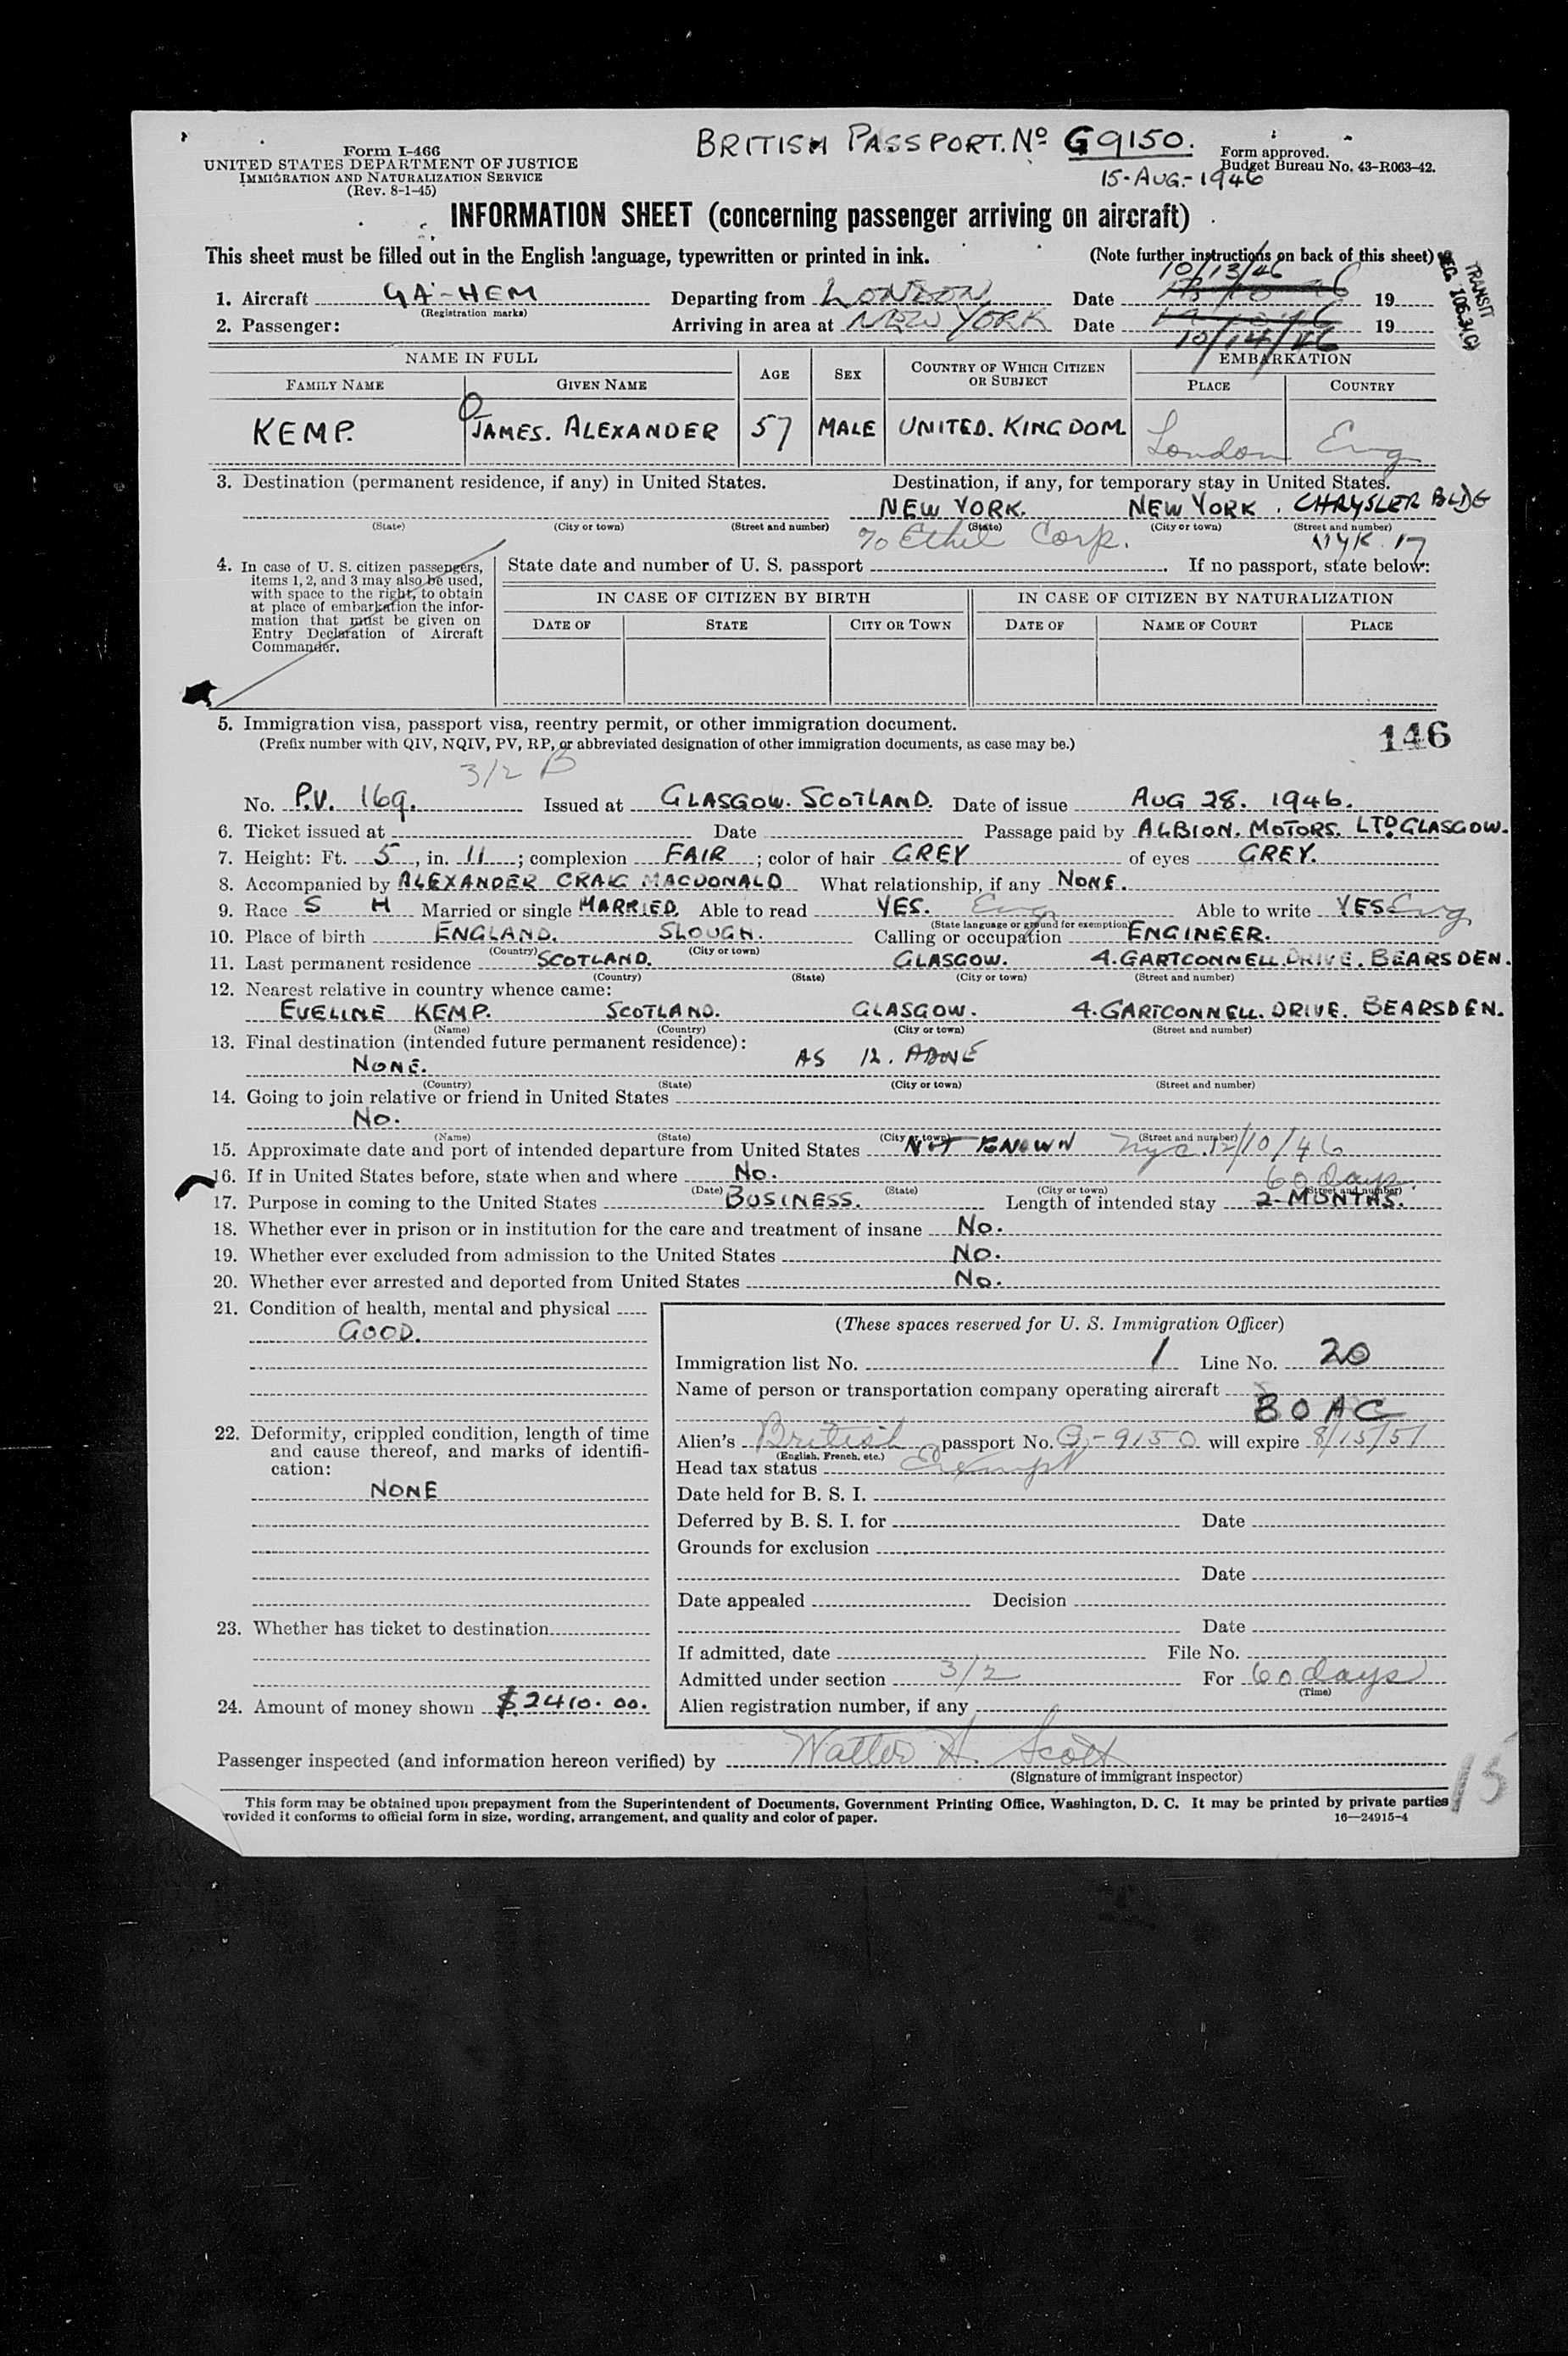 BRITISH PASSPORT. Nº G 9150.
15-AUG.-1946
Form I-466
UNITED STATES DEPARTMENT OF JUSTICE
IMMIGRATION AND NATURALIZATION SERVICE
(Rev. 8-1-45)
Form approved.
Budget Bureau No. 43-R063-42.
INFORMATION SHEET (concerning passenger arriving on aircraft)
This sheet must be filled out in the English language, typewritten or printed in ink. (Note further instructions on back of this sheet)
TRANSIT
SEC. 106.3(G)
10/13/46
1. Aircraft GA-HEM Departing from LONDON Date 19
(Registration marks)
2. Passenger: Arriving in area at NEW YORK Date 19
10/14/46
NAME IN FULL AGE SEX COUNTRY OF WHICH CITIZEN OR SUBJECT EMBARKATION
FAMILY NAME GIVEN NAME PLACE COUNTRY
KEMP. JAMES. ALEXANDER 57 MALE UNITED. KINGDOM London Eng
3. Destination (permanent residence, if any) in United States. Destination, if any, for temporary stay in United States.
NEW YORK. NEW YORK. CHRYSLER BLDG
(State) (City or town) (Street and number) (State) (City or town) (Street and number)
c/o Ethel Corp. NYK 17
4. In case of U. S. citizen passengers, items 1, 2, and 3 may also be used, with space to the right, to obtain at place of embarkation the information that must be given on Entry Declaration of Aircraft Commander.
State date and number of U. S. passport . If no passport, state below:
IN CASE OF CITIZEN BY BIRTH IN CASE OF CITIZEN BY NATURALIZATION
DATE OF STATE CITY OR TOWN DATE OF NAME OF COURT PLACE
5. Immigration visa, passport visa, reentry permit, or other immigration document.
146
(Prefix number with QIV, NQIV, PV, RP, or abbreviated designation of other immigration documents, as case may be.)
3/2 B
No. P.V. 169. Issued at GLASGOW. SCOTLAND. Date of issue AUG 28. 1946.
6. Ticket issued at Date Passage paid by ALBION. MOTORS. LTD GLASGOW.
7. Height: Ft. 5, in. 11; complexion FAIR; color of hair GREY of eyes GREY.
8. Accompanied by ALEXANDER CRAIG MACDONALD What relationship, if any NONE.
9. Race S H Married or single MARRIED. Able to read YES. Eng Able to write YES Eng
(State language or ground for exemption)
10. Place of birth ENGLAND. SLOUGH. Calling or occupation ENGINEER.
(Country) (City or town)
11. Last permanent residence SCOTLAND. GLASGOW. 4. GARTCONNELL. DRIVE. BEARSDEN.
(Country) (State) (City or town) (Street and number)
12. Nearest relative in country whence came:
EVELINE KEMP. SCOTLAND. GLASGOW. 4. GARTCONNELL. DRIVE. BEARSDEN.
(Name) (Country) (City or town) (Street and number)
13. Final destination (intended future permanent residence):
NONE. AS 12. ABOVE
(Country) (State) (City or town) (Street and number)
14. Going to join relative or friend in United States
No.
(Name) (State) (City or town) (Street and number)
15. Approximate date and port of intended departure from United States NOT KNOWN Nyc. 12/10/46
16. If in United States before, state when and where No. 60 days.
(Date) (State) (City or town) (Street and number)
17. Purpose in coming to the United States BUSINESS. Length of intended stay 2-MONTHS.
18. Whether ever in prison or in institution for the care and treatment of insane No.
19. Whether ever excluded from admission to the United States No.
20. Whether ever arrested and deported from United States No.
21. Condition of health, mental and physical
GOOD.
22. Deformity, crippled condition, length of time and cause thereof, and marks of identification:
NONE
23. Whether has ticket to destination
24. Amount of money shown $2410.00.
(These spaces reserved for U. S. Immigration Officer)
Immigration list No. 1 Line No. 20
Name of person or transportation company operating aircraft
BOAC
Alien's British passport No. G-9150 will expire 8/15/51
(English, French, etc.)
Head tax status Exempt
Date held for B. S. I.
Deferred by B. S. I. for Date
Grounds for exclusion
Date
Date appealed Decision
Date
If admitted, date File No.
Admitted under section 3/2 For 60 days
(Time)
Alien registration number, if any
Passenger inspected (and information hereon verified) by Walter H. Scott
(Signature of immigrant inspector)
15
This form may be obtained upon prepayment from the Superintendent of Documents, Government Printing Office, Washington, D. C. It may be printed by private parties
rovided it conforms to official form in size, wording, arrangement, and quality and color of paper. 16—24915-4